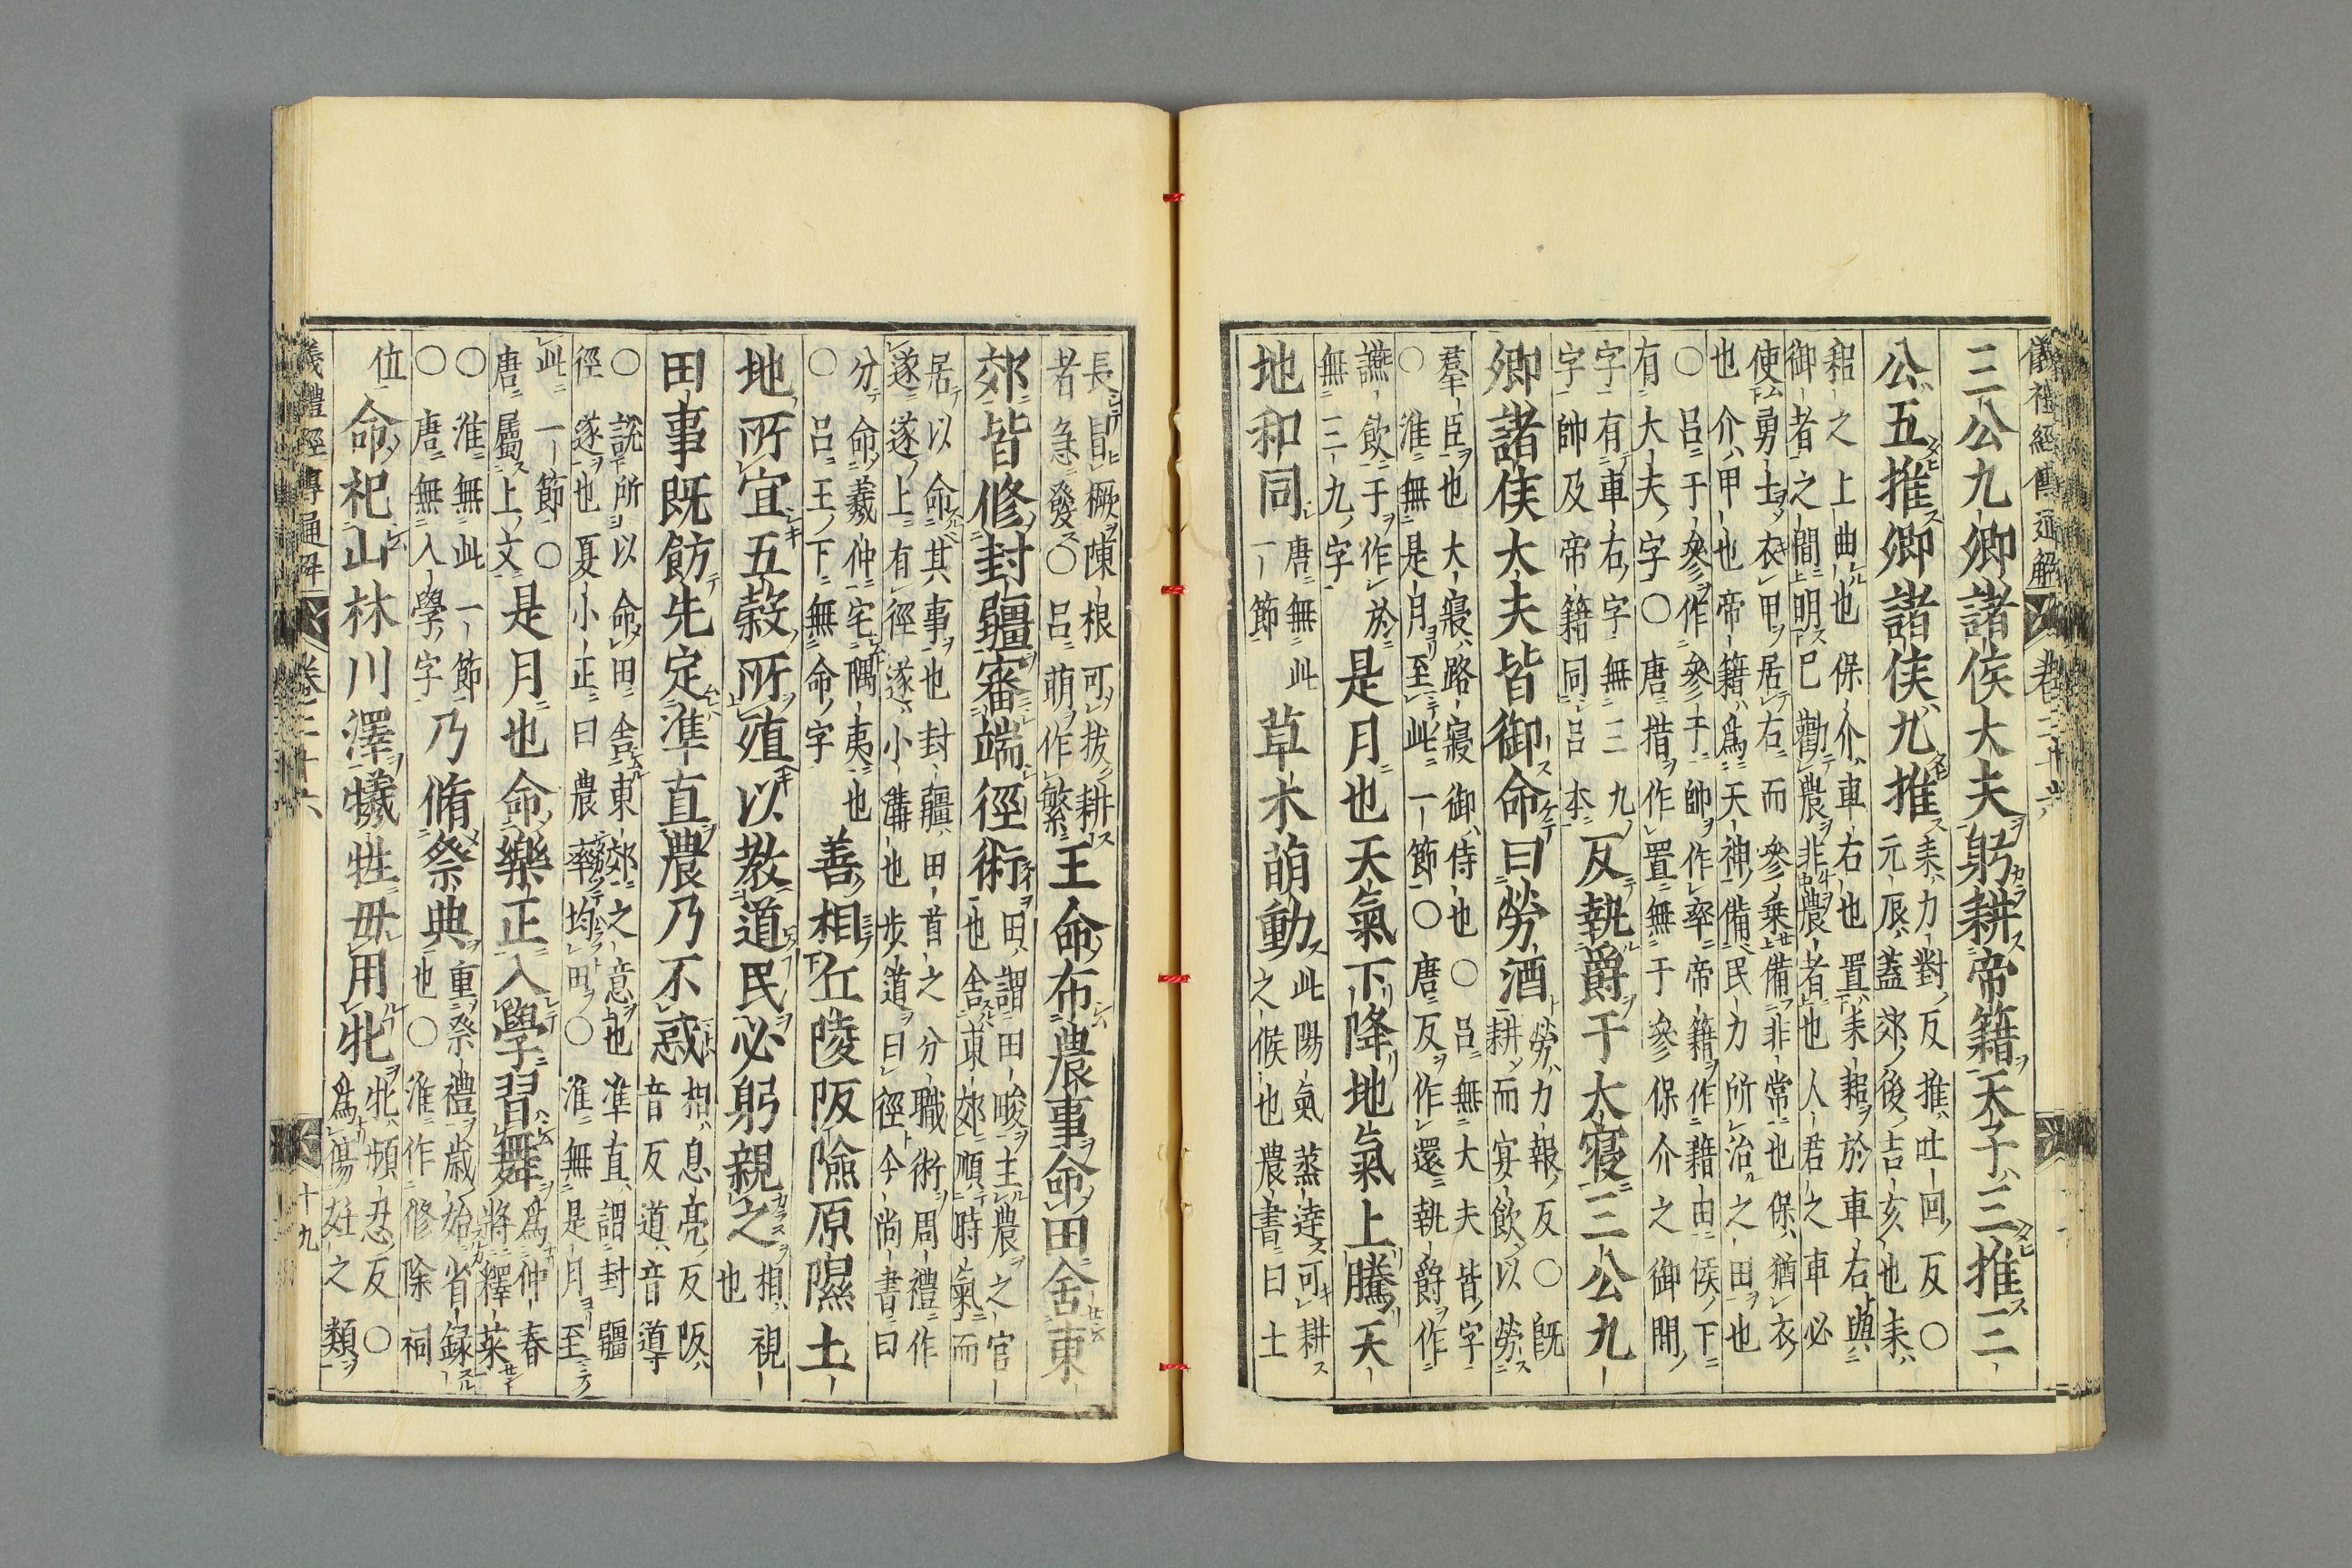 儀禮經傳通解 卷二十六
三公九卿諸侯大夫躬耕帝籍天子三推三
公五推卿諸侯九推 耒力對反推吐回反○
元辰蓋郊後吉亥也耒
耜之上曲也保介車右也置耒耜於車右與
御者之間明已勸農非農者也人君之車必
使勇士衣甲居右而參乘備非常也保猶衣
也介甲也帝籍爲天神備民力所治之田也
○呂于參作參于帥作率帝籍作藉由侯下
有大夫字○唐措作置無于參保介之御閒
字有車右字無三九
字帥及帝籍同呂本 反執爵于大寢三公九
卿諸侯大夫皆御命曰勞酒 勞力報反○既
耕而宴飲以勞
羣臣也大寢路寢御侍也○呂無大夫皆字
○淮無是月至此一節○唐反作還執爵作
讌飲于作於
無三九字 是月也天氣下降地氣上騰天
地和同 唐無此
一節 草木萌動 此陽氣蒸達可耕
之候也農書曰土
長冒橛陳根可拔耕
者急發○呂萌作繁 王命布農事命田舍東
郊皆修封疆審端徑術 田謂田畯主農之官
也舍東郊順時氣而
居以命其事也封疆田首之分職術周禮作
遂遂上有徑遂小溝也步道曰徑今尚書曰
分命羲仲宅隅夷也
○呂王下無命字 善相丘陵阪險原隰土
地所宜五穀所殖以教道民必躬親之 相視
也
田事既飭先定準直農乃不惑 相息亮反阪
音反道音導
○說所以命田舍東郊之意也準直謂封疆
徑遂也夏小正曰農率均田○淮無是月至
此一節○
唐屬上文 是月也命樂正入學習舞 爲仲春
將釋菜
○淮無此一節
○唐無入學字 乃脩祭典 重祭禮歲始省録
也○淮作修除祠
位 命祀山林川澤犧牲毋用牝 牝頻忍反○
爲傷妊之類
儀禮經傳通解 卷二十六 十九